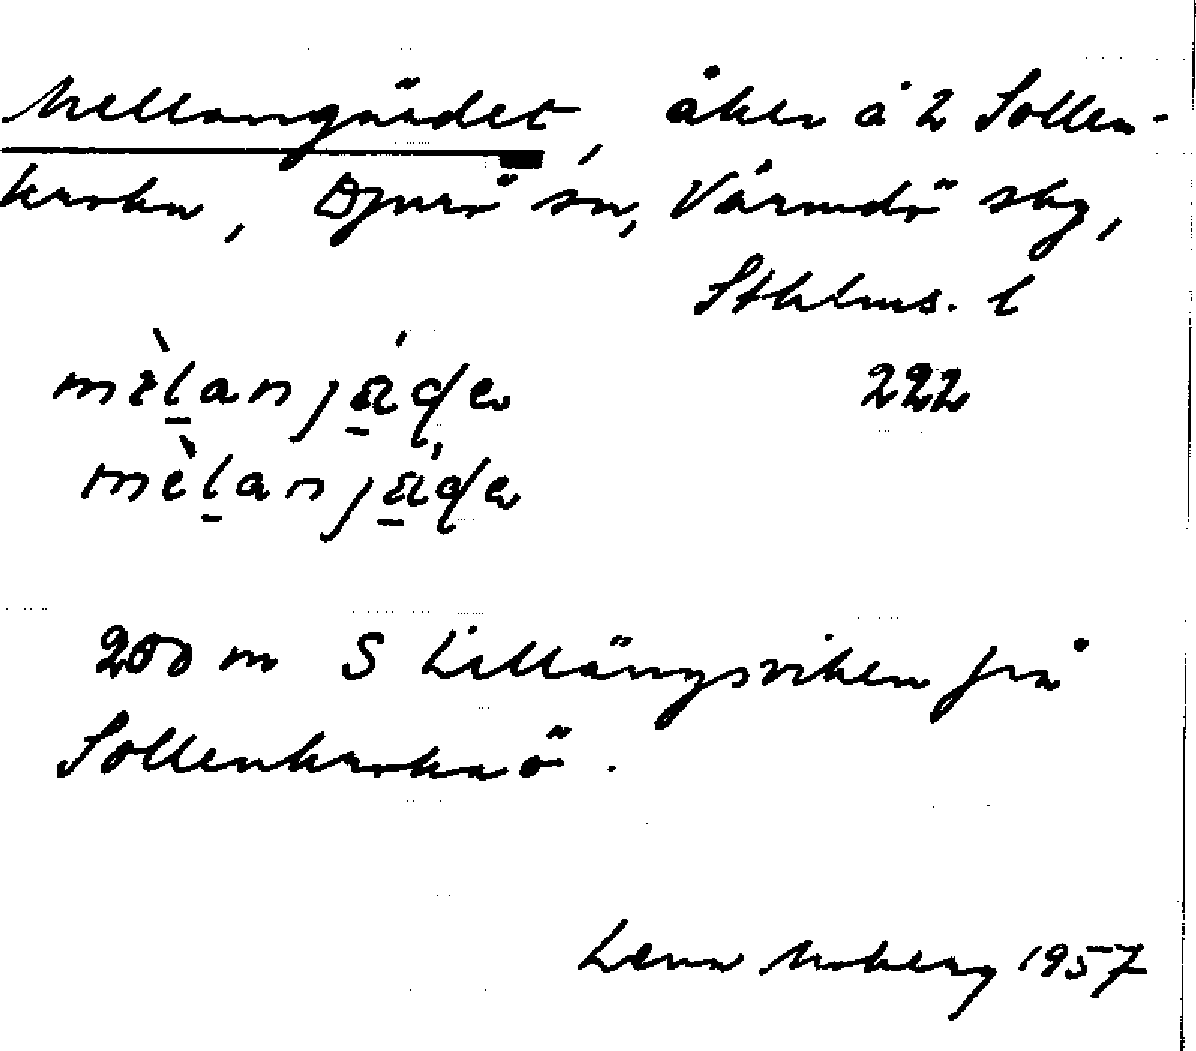 Mellangärdet, åker å 2 Sollen-
kroka, Djurö sn, Värmdö skg,
Sthlms. l
mèlanjä́ḍe 222
mèlanjä́ḍe
200 m S Lillängsviken på
Sollenkroka ö.
Lena Moberg 1957